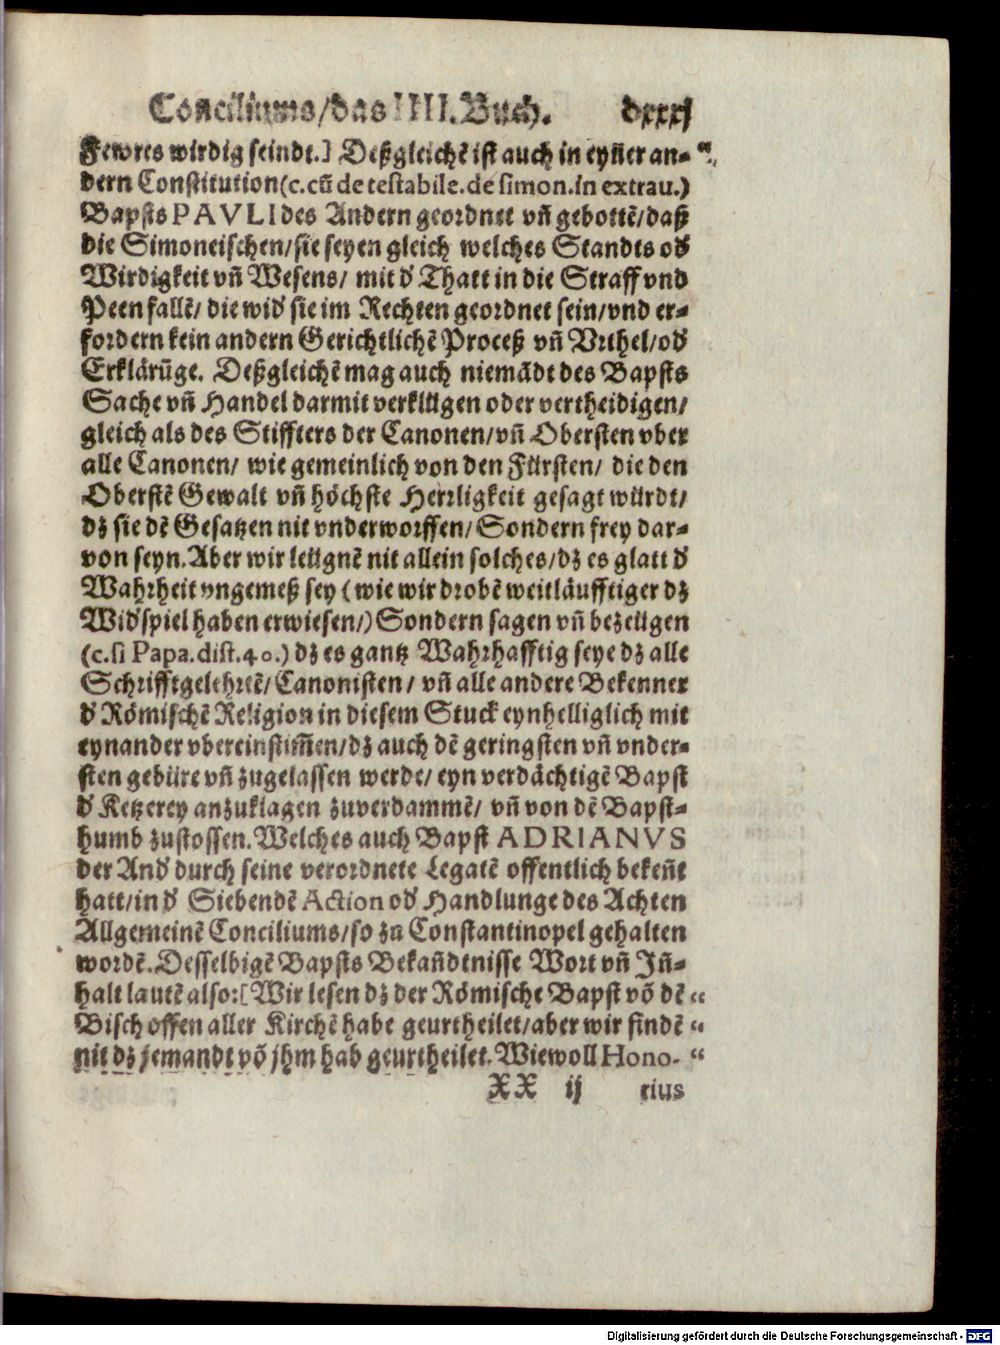 Conciliums/das IIII. Buch. dxxxj
Fewres wirdig seindt.] Deßgleichẽ ist auch in eyñer an⸗ „
dern Constitution (c. cũ detestabile. de simon. in extrau.)
Bapsts PAVLI des Andern geordnet vñ gebottẽ/daß
die Simoneischen/sie seyen gleich welches Standts od'
Wirdigkeit vñ Wesens/ mit d' Thatt in die Straff vnd
Peen fallẽ/ die wid' sie im Rechten geordnet sein/vnd er⸗
fordern kein andern Gerichtlichẽ Proceß vñ Vrthel/od'
Erklärũge. Deßgleichẽ mag auch niemãdt des Bapsts
Sache vñ Handel darmit verklügen oder vertheidigen/
gleich als des Stiffters der Canonen/vñ Obersten vber
alle Canonen/ wie gemeinlich von den Fürsten/ die den
Oberstẽ Gewalt vñ höchste Herrligkeit gesagt würdt/
dz sie dẽ Gesatzen nit vnderworffen/ Sondern frey dar⸗
von seyn. Aber wir leügnẽ nit allein solches/dz es glatt d'
Wahrheit vngemeß sey (wie wir drobẽ weitläufftiger dz
Wid'spiel haben erwiesen/) Sondern sagen vñ bezeügen
(c. si Papa. dist. 40.) dz es gantz Wahrhafftig seye dz alle
Schrifftgelehrtẽ/ Canonisten/ vñ alle andere Bekenner
d' Römischẽ Religion in diesem Stuck eynhelliglich mit
eynander vbereinstim̃en/dz auch dẽ geringsten vñ vnder⸗
sten gebüre vñ zugelassen werde/ eyn verdächtigẽ Bapst
d' Ketzerey anzuklagen zuverdammẽ/ vñ von dẽ Bapst⸗
humb zustossen. Welches auch Bapst ADRIANVS
der And' durch seine verordnete Legatẽ offentlich bekeñt
hatt/in d' Siebendẽ Action od' Handlunge des Achten
Allgemeinẽ Conciliums/so zu Constantinopel gehalten
wordẽ. Desselbigẽ Bapsts Bekañdtnisse Wort vñ Jñ⸗
halt lautẽ also:[Wir lesen dz der Römische Bapst võ dẽ „
Bischoffen aller Kirchẽ habe geurtheilet/aber wir findẽ „
nit dz jemandt võ jhm hab geurtheilet. Wiewoll Hono- „
XX ij rius
Digitalisierung gefördert durch die Deutsche Forschungsgemeinschaft - DFG